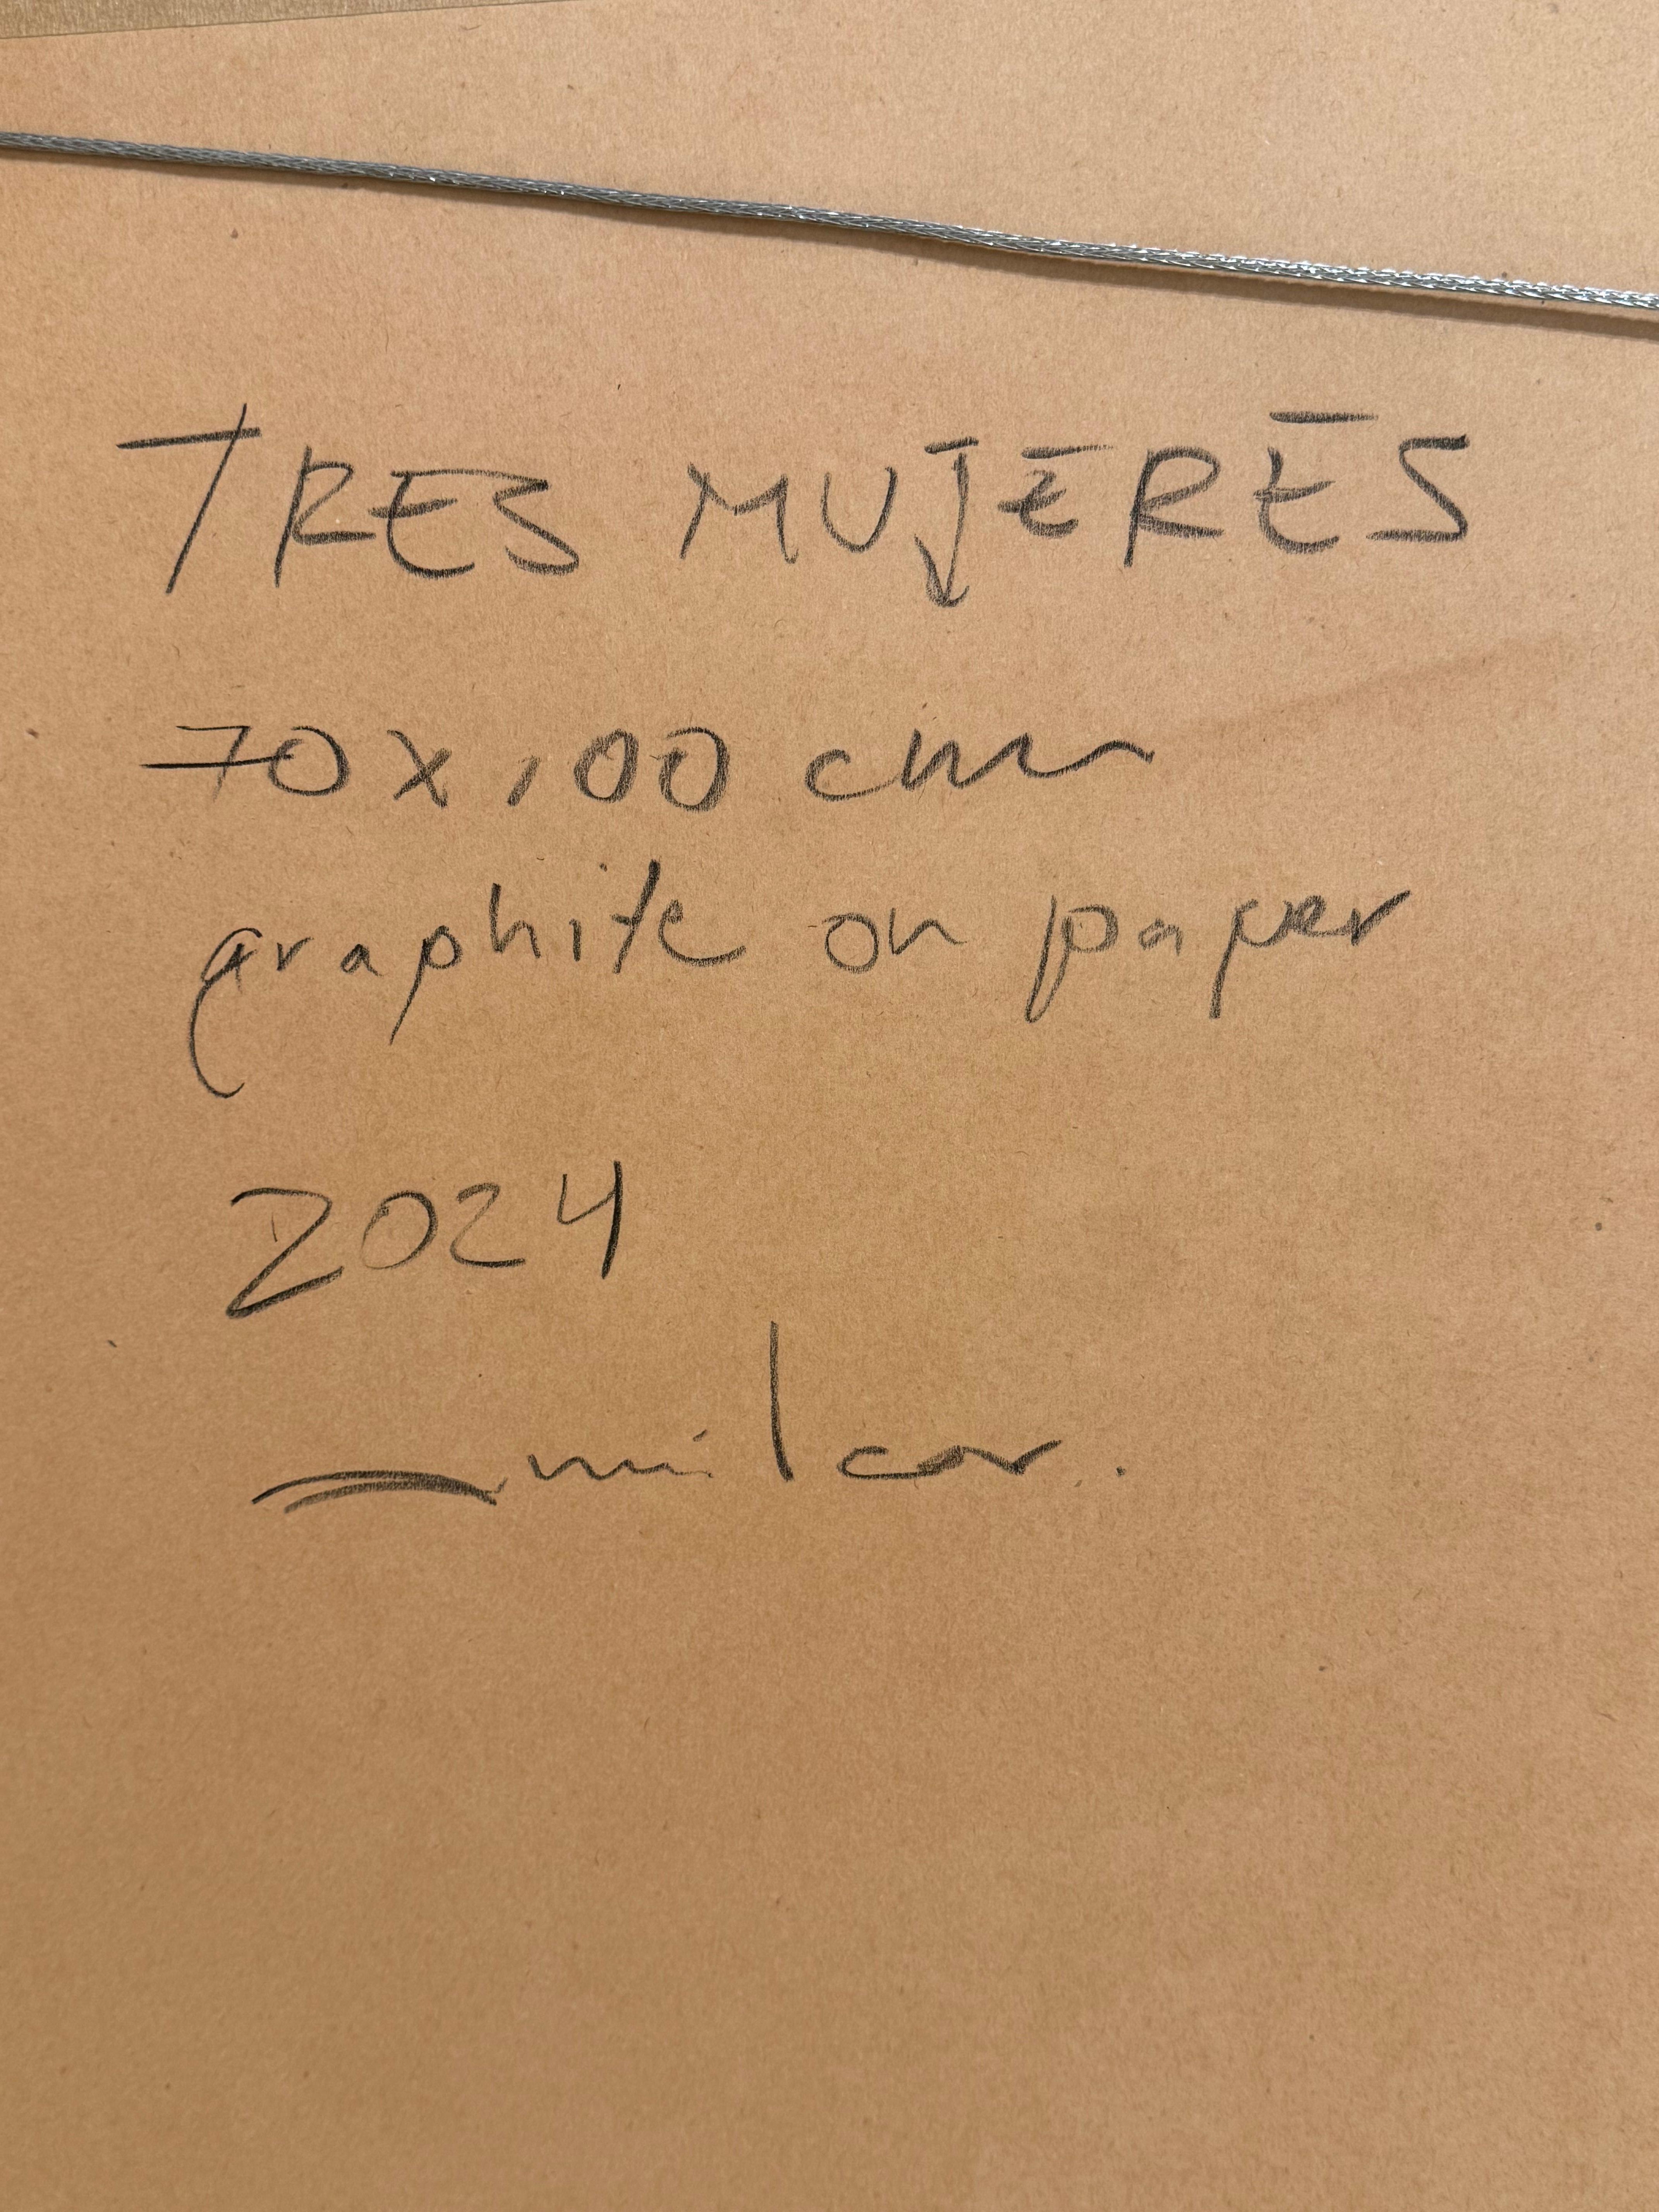 TRES MUJERES
70x100 cm
graphite on paper
2024